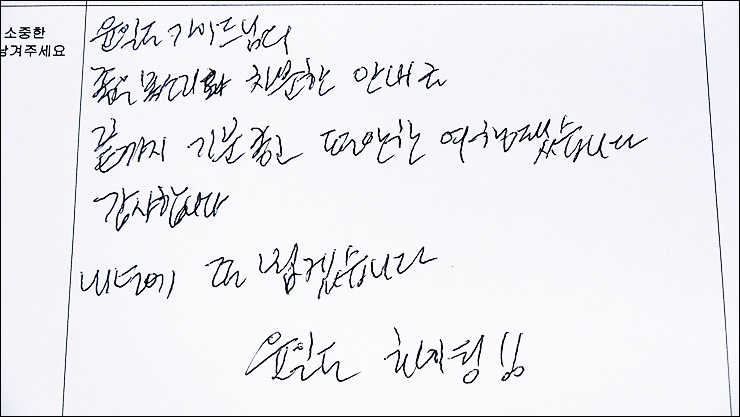 소중한
남겨주세요
윤일도 가이드님의
좋은 목소리와 차분한 안내로
끝까지 기분 좋은 편안한
감사합니다
내년에 또 뵙겠습니다
윤일도 화이팅!!